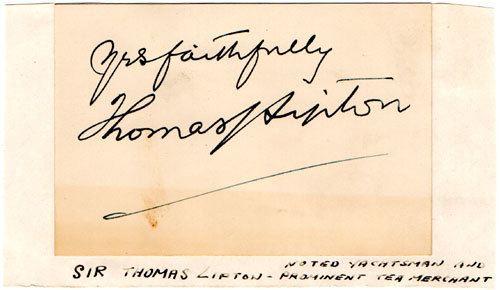 Yrs faithfully
Thomas J Lipton
NOTED YACHTSMAN AND
SIR THOMAS LIPTON - PROMINENT TEA MERCHANT